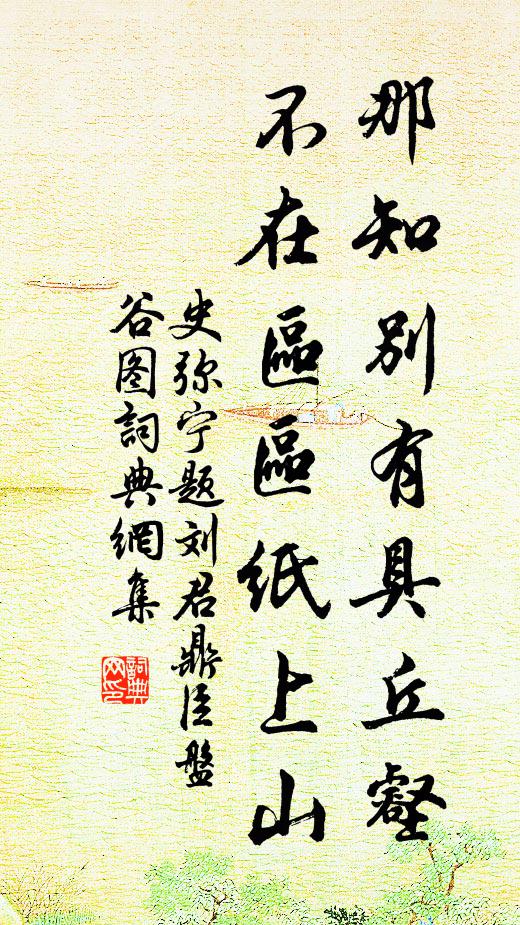 那知别有具丘壑
不在區區纸上山
史弥宁题刘君鼎臣盤
谷图詞典網集
詞典网印